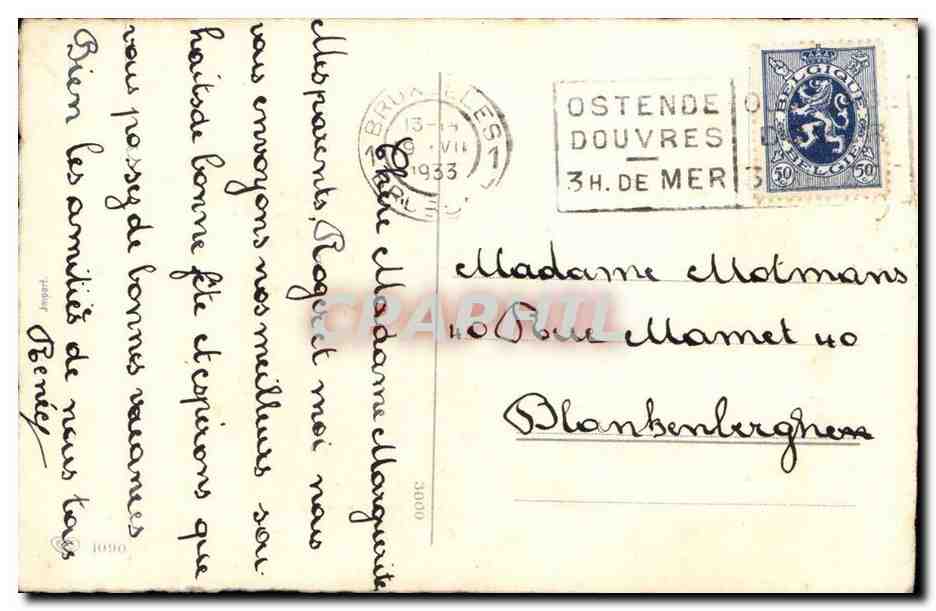 Chère Madame Marguerite
Mes parents, Roger et moi nous
vous envoyons nos meilleurs sou
haits de bonne fête et espérons que
vous passez de bonnes vacances
Bien les amitiés de nous tous
Renée
BRUXELLES
13-14
VII
1933
1 1
OSTENDE
DOUVRES
3 H. DE MER
BELGIQUE
BELGIË
50 50
Madame Motmans
40 Rue Mamet 40
Blankenberghe
CPAPHIL
3000
Import
1090